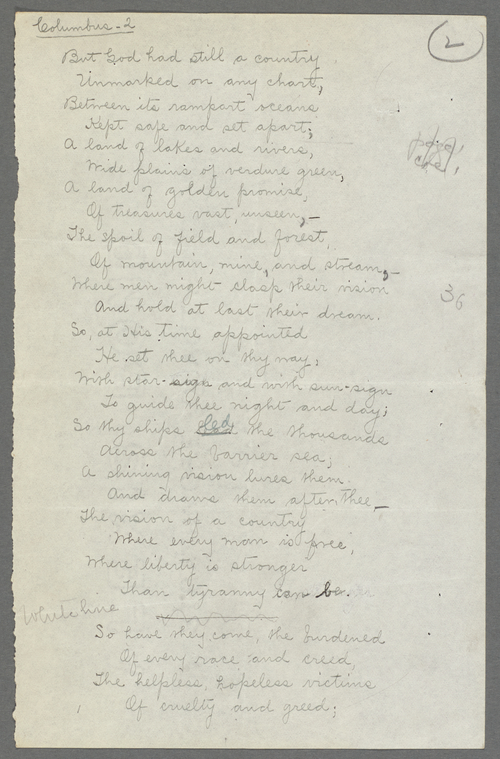 Columbus - 2
2
But God had still a country
Unmarked on any chart,
Between its rampart oceans
Kept safe and set apart;
A land of lakes and rivers,
Wide plains of verdure green,
A land of golden promise,
Of treasures vast, unseen,—
The spoil of field and forest,
Of mountain, mine, and stream,—
Where men might clasp their vision
And hold at last their dream.
36
So, at His time appointed
He set thee on thy way,
With star-sign and with sun-sign
To guide thee night and day;
So thy ships led the thousands
Across the barrier sea;
A shining vision lures them
And draws them after thee—
The vision of a country
Where every man is free,
Where liberty is stronger
Than tyranny can be.
White line
So have they come, the burdened
Of every race and creed,
The helpless, hopeless victims
Of cruelty and greed;